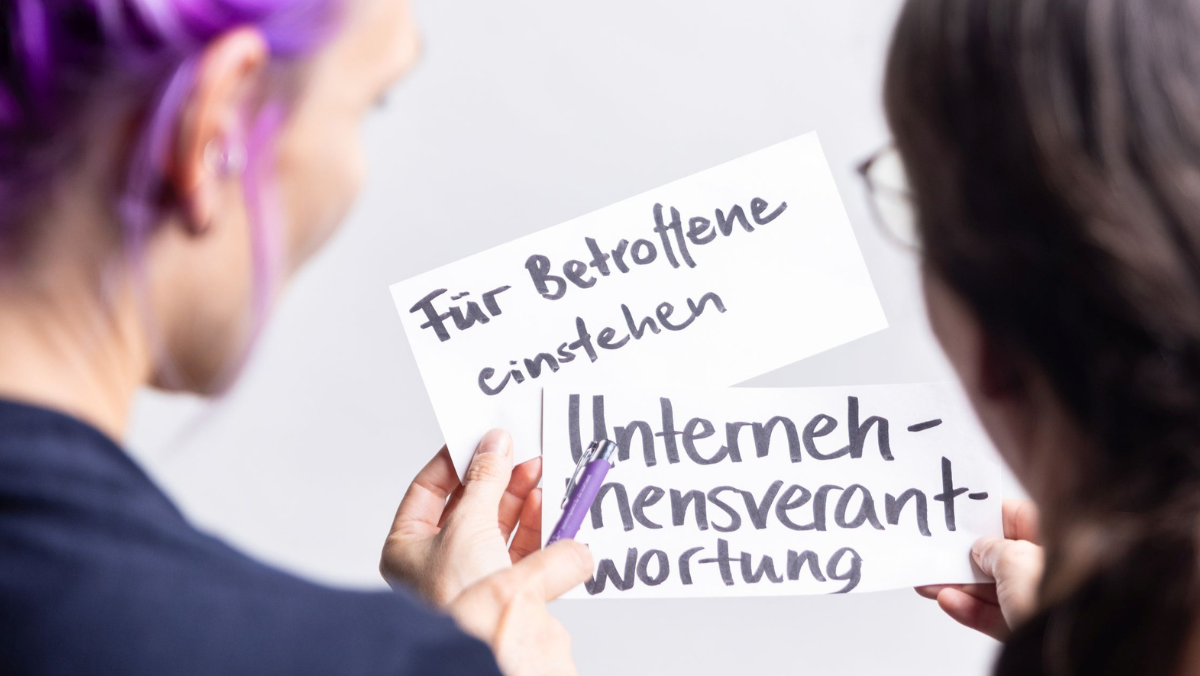 Für Betroffene
einstehen
Unterneh-
mensverant-
wortung